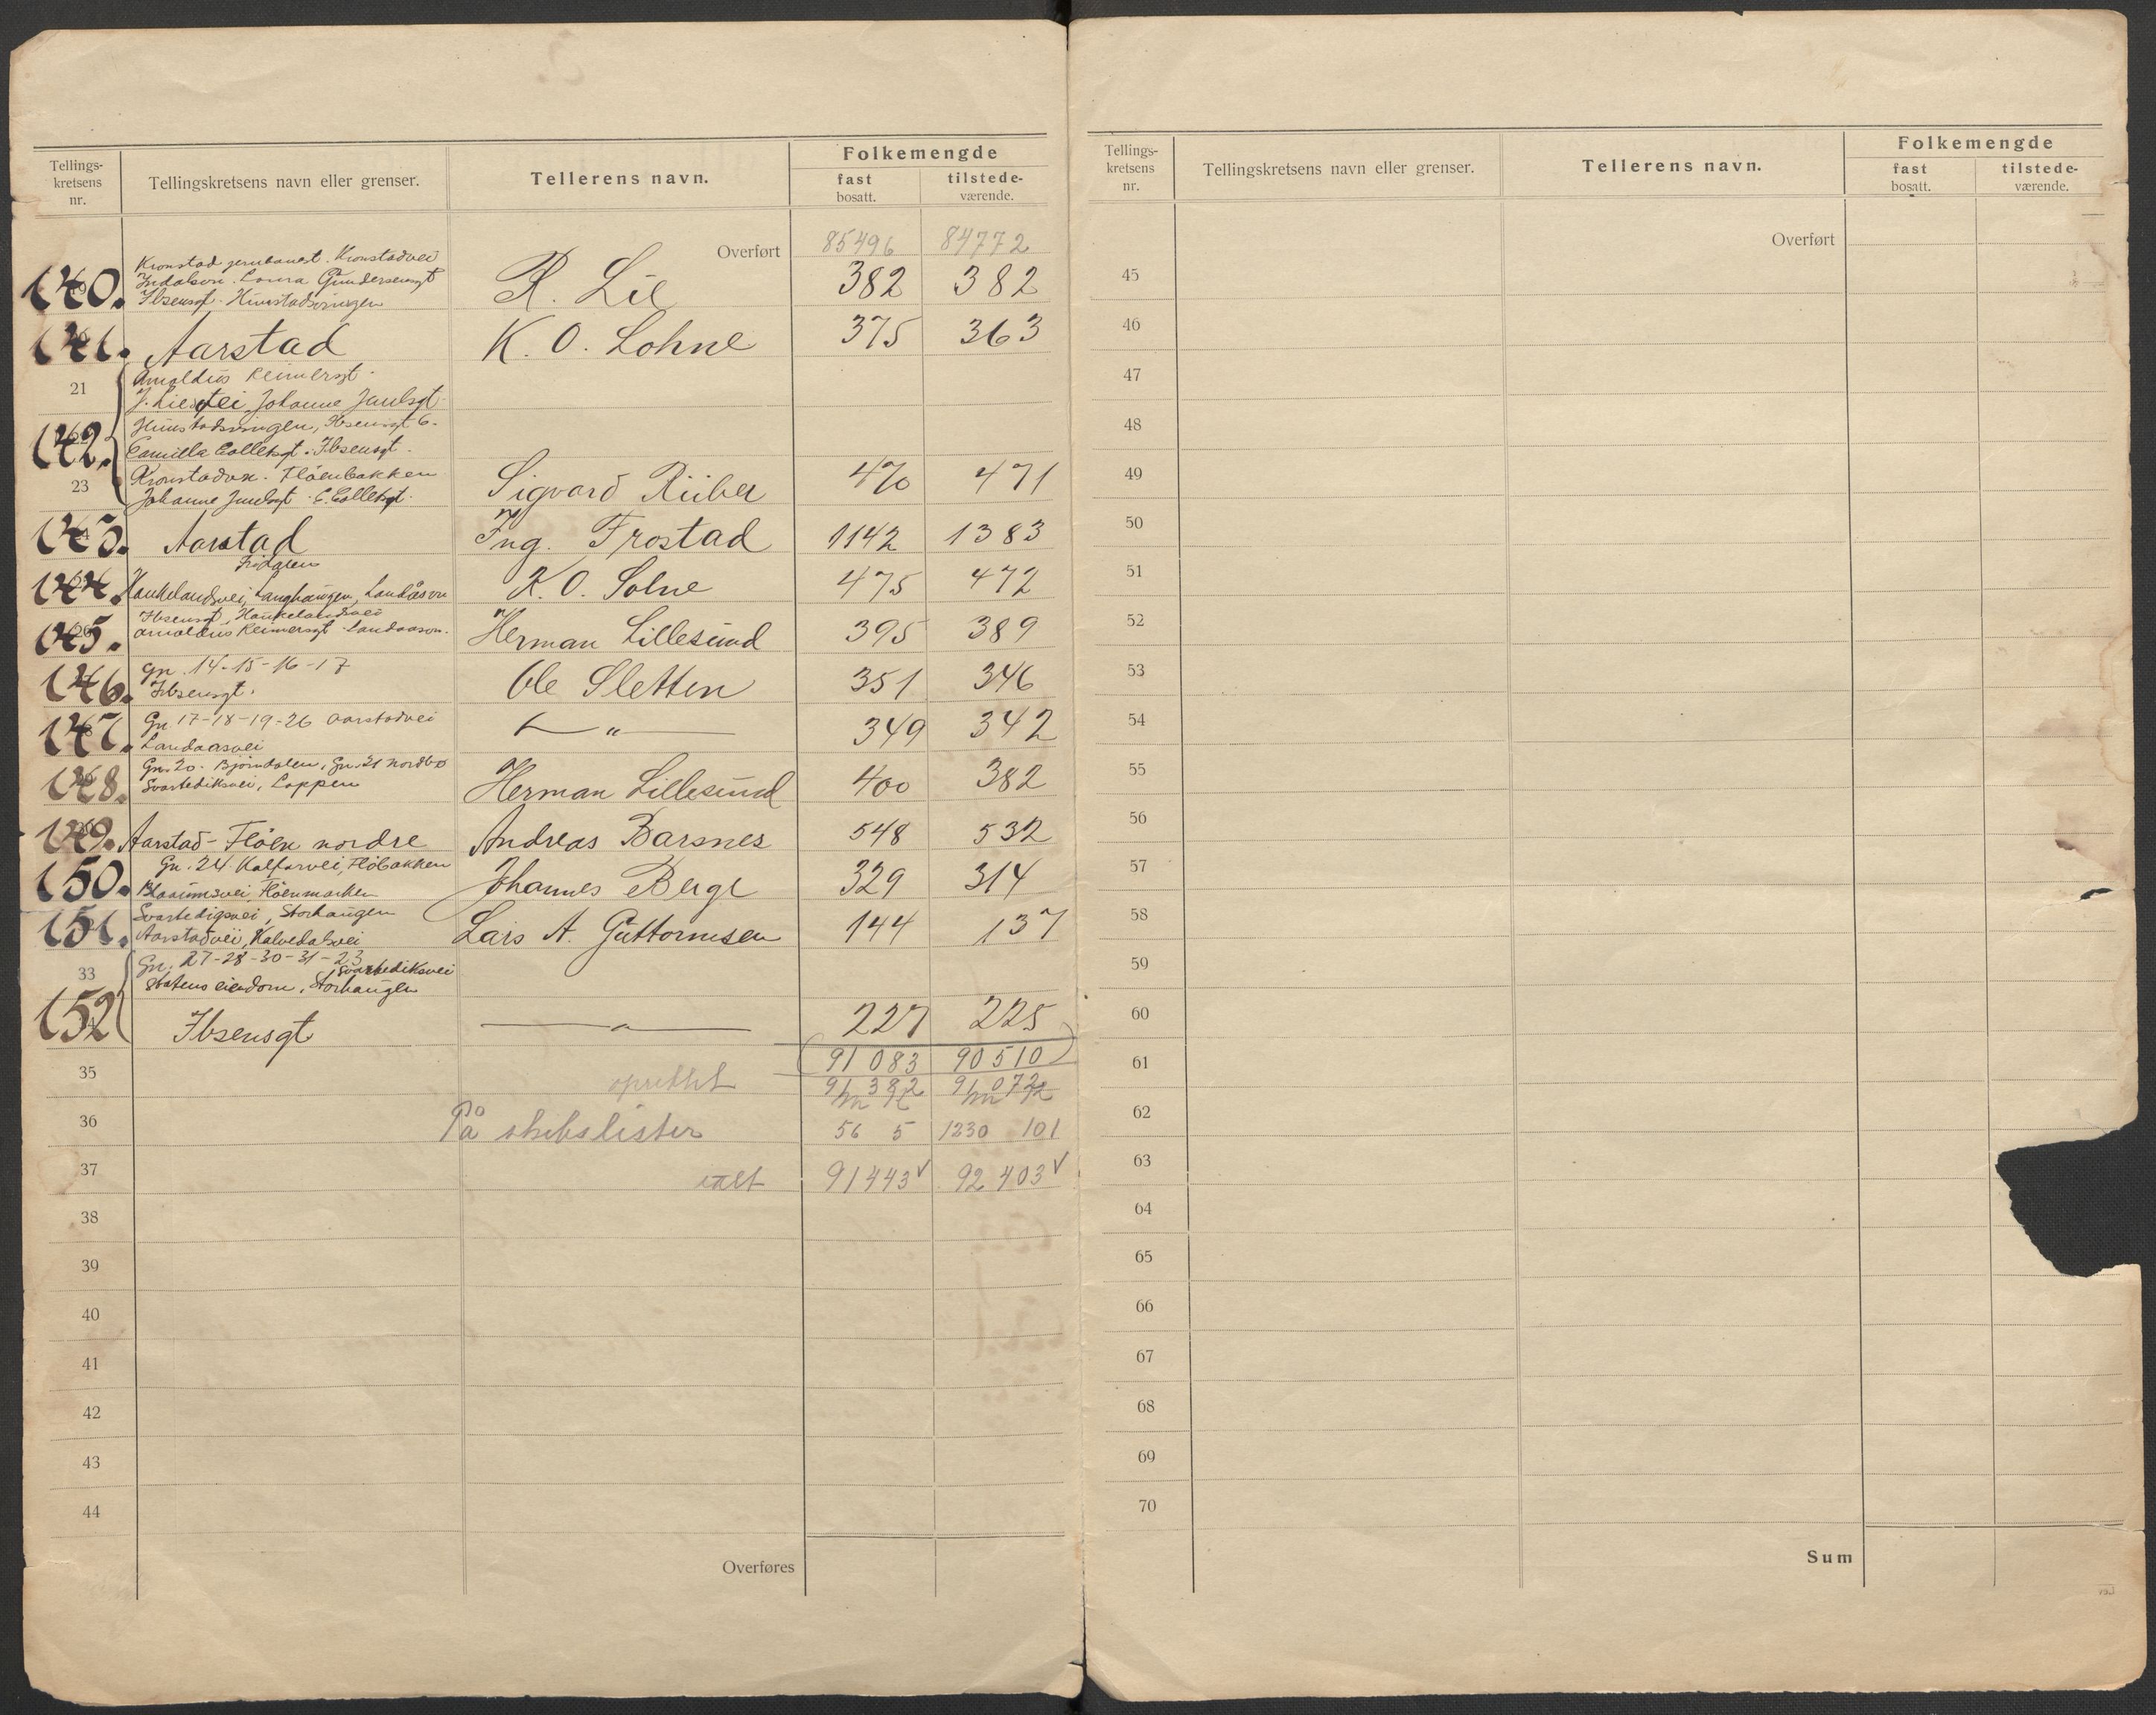 Tellings-
kretsens
nr.
Tellingskretsens navn eller grenser.
Tellerens navn.
Folkemengde
fast
bosatt.
tilstede-
værende.
Overført 85496 84772
Kronstad jernbanest. Kronstadvei
Laura Gundersensgt
140. Ibsensgt. R. Lie 382 382
141. Aarstad K. O. Lohne 375 363
Arnoldus Reimersgt.
21
J. Liesvei, Johanne Juulsgt
Ibsensgt 6.
142. Camilla Colletsgt. Ibsensgt.
23 Kronstadvei. Flöenbakken Sigvard Riiber 470 471
Johanne Juulsgt. C. Colletsgt.
143. Aarstad Ing. Frostad 1142 1383
Fridalen
144. Haukelandsvei, Langhaugen, Landåsvn K. O. Solne 475 472
Ibsensgt, Haukelandsvei
145. Arnoldus Reimersgt. Landaasvn. Herman Lillesund 395 389
Gn. 14-15-16-17
146. Ibsensgt. Ole Sletten 351 346
Gn. 17-18-19-26 Aarstadvei
147. Landaasvei — " — 349 342
Gn. 20. Björndalen, Gn. 21 nordbø
148. Svartediksvei, Loppen Herman Lillesund 400 382
149. Aarstad - Flöen nordre Andreas Barsnes 548 532
Gn. 24 Kalfarvei, Flöbakken
150. Flöenmarken Johannes Berge 329 314
Svartedigsvei, Storhaugen
151. Aarstadvei, Kalvedalsvei Lars A. Guttormsen 144 137
33 Gn. 27-28-30-31-23
Svartediksvei
Statens eiendom, Storhaugen
152 Ibsensgt — " — 227 225
91 083 90 510
35 oprettet 91 382 91 072
36 På skibslister 56 5 1230 101
37 ialt 91 443 ✓ 92 403 ✓
38
39
40
41
42
43
44
Overføres
Tellings-
kretsens
nr.
Tellingskretsens navn eller grenser.
Tellerens navn.
Folkemengde
fast
bosatt.
tilstede-
værende.
Overført
45
46
47
48
49
50
51
52
53
54
55
56
57
58
59
60
61
62
63
64
65
66
67
68
69
70
Sum